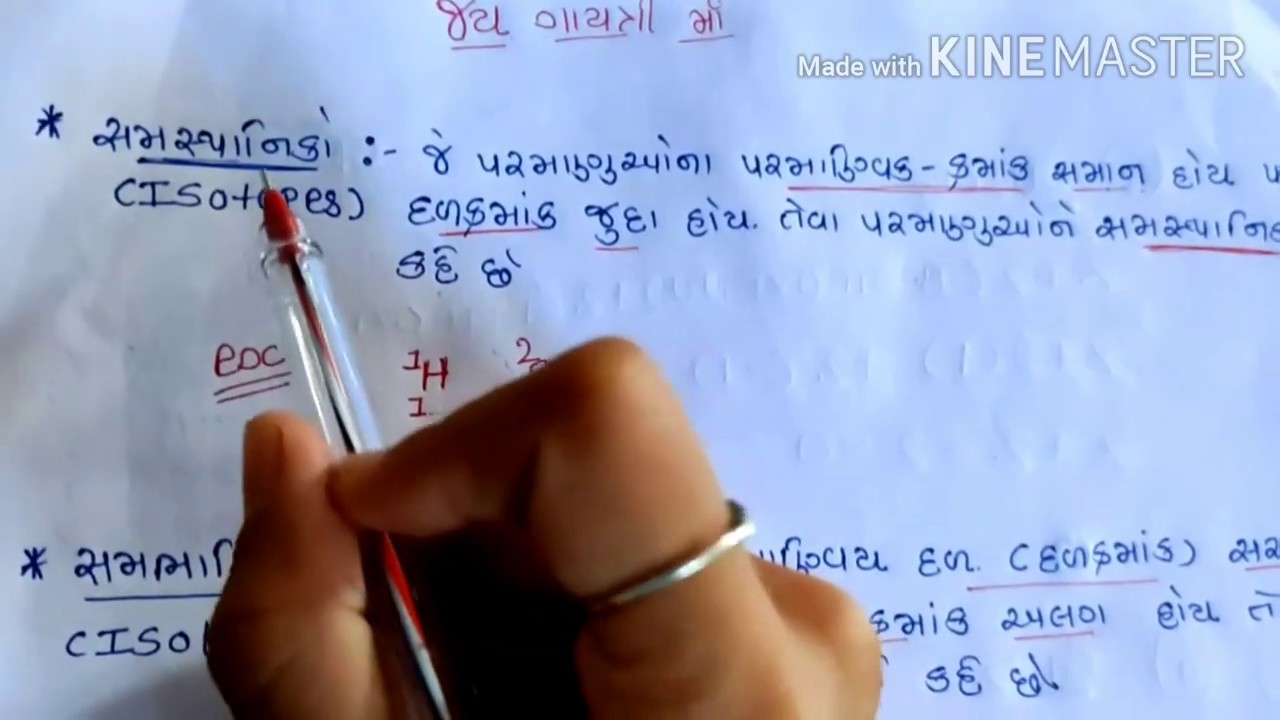 જય ગાયત્રી માઁ
Made with KINEMASTER
* સમસ્થાનિકો :- જે પરમાણુઓના પરમાણ્વિક - ક્રમાંક સમાન હોય
(ISotopes) દળક્રમાંક જુદા હોય. તેવા પરમાણુઓને
કહે છે
eoc ¹H ²
1
* દળ (દળક્રમાંક)
(ISO ક્રમાંક અલગ હોય તે
કહે છે